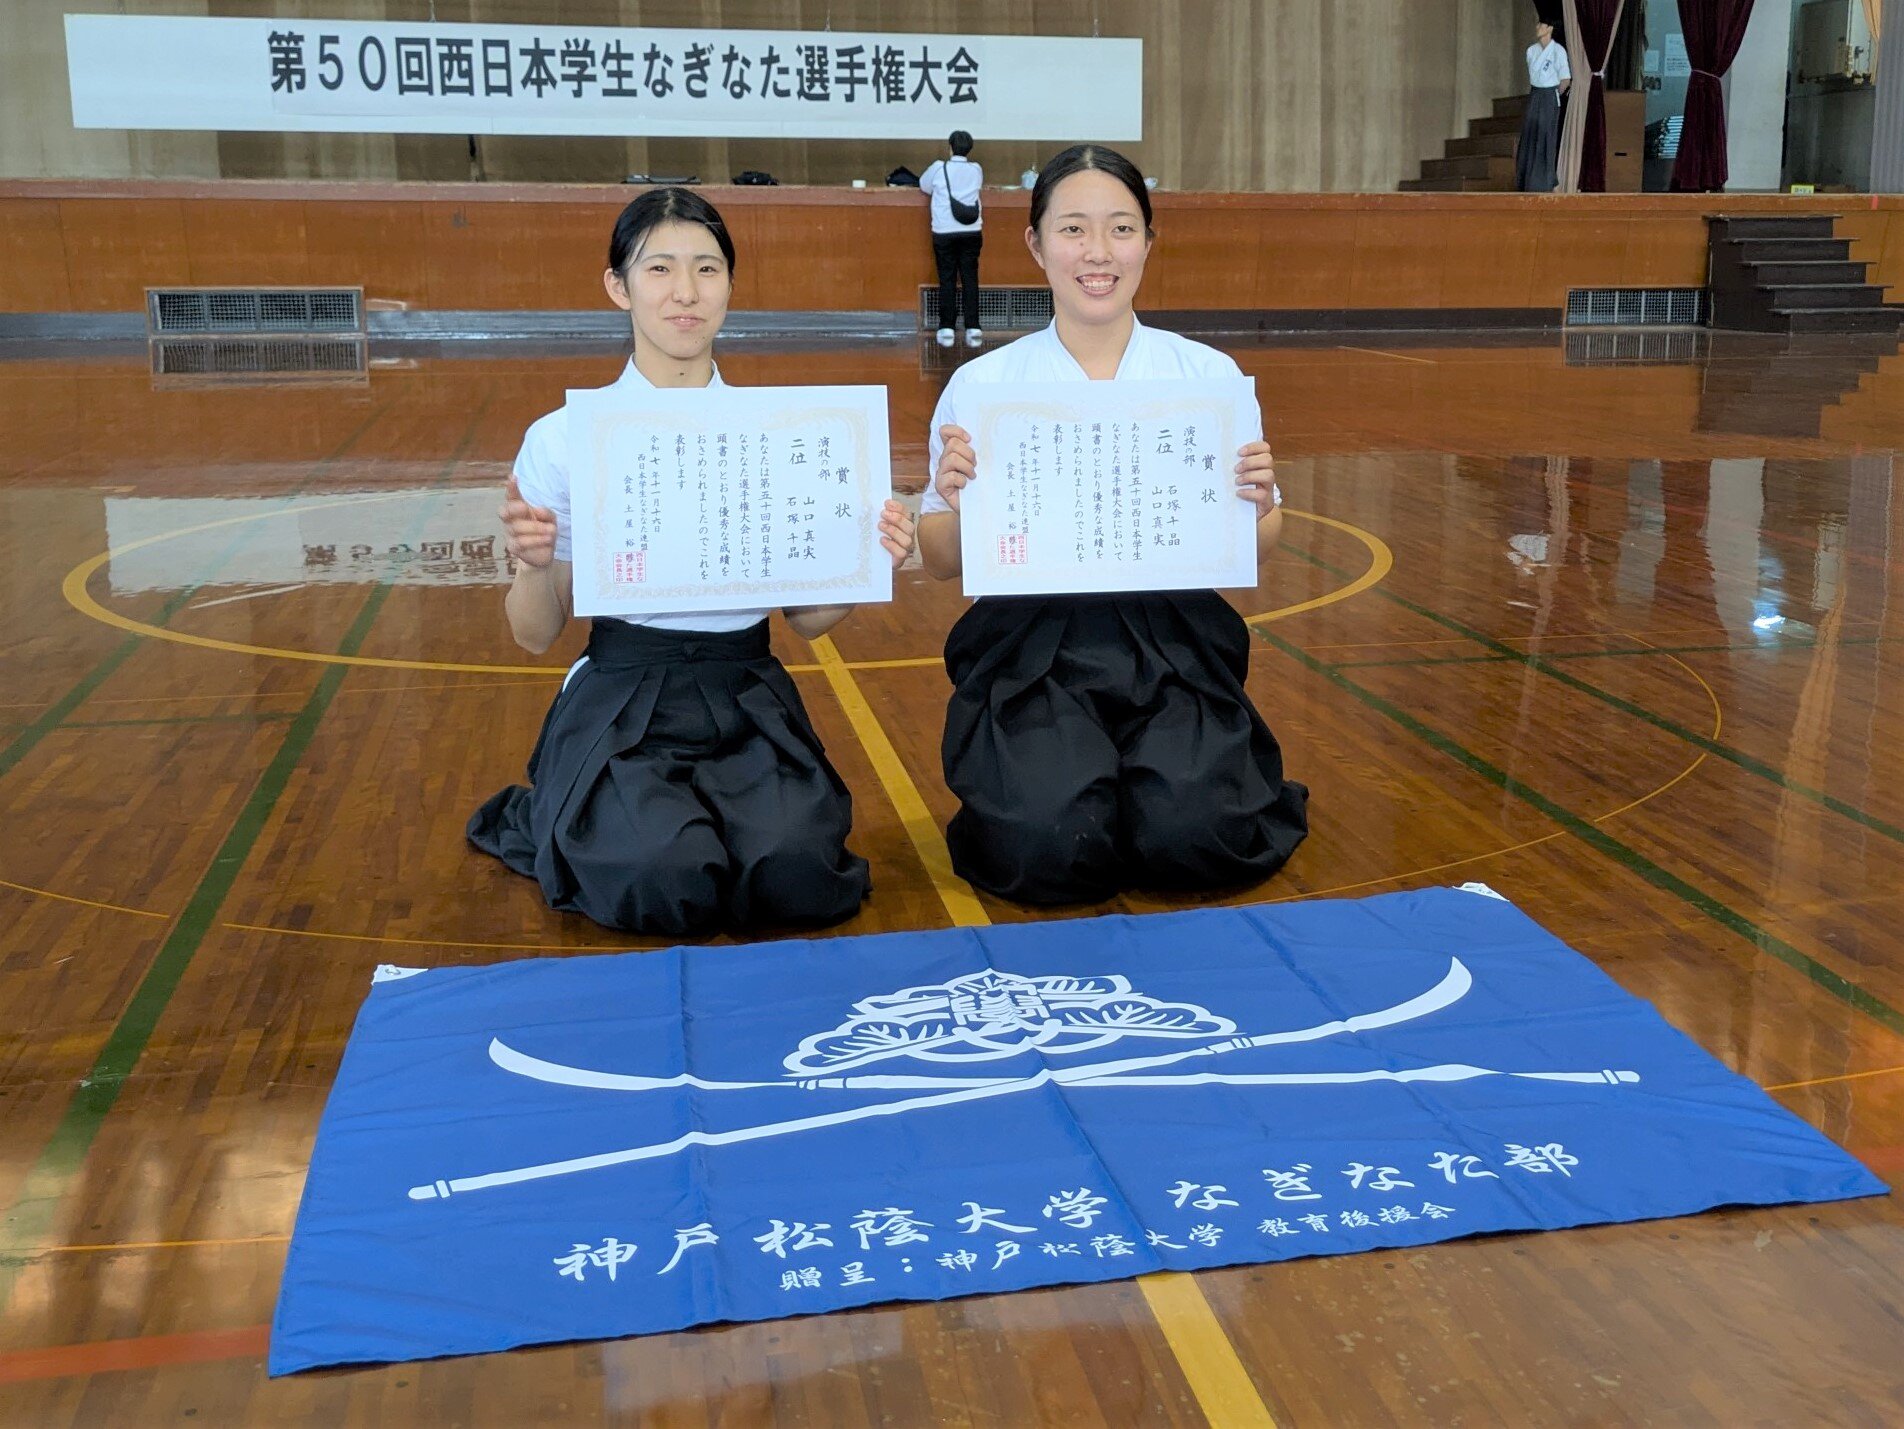 第50回西日本学生なぎなた選手権大会
賞状
演技の部
二位 山口真実
石塚千晶
あなたは第五十回西日本学生
なぎなた選手権大会において
頭書のとおり優秀な成績を
おさめられましたのでこれを
表彰します
令和七年十一月十六日
西日本学生なぎなた連盟
会長 土屋 裕
賞状
演技の部
二位 石塚千晶
山口真実
あなたは第五十回西日本学生
なぎなた選手権大会において
頭書のとおり優秀な成績を
おさめられましたのでこれを
表彰します
令和七年十一月十六日
西日本学生なぎなた連盟
会長 土屋 裕
神戸松蔭大学 なぎなた部
贈呈:神戸松蔭大学 教育後援会